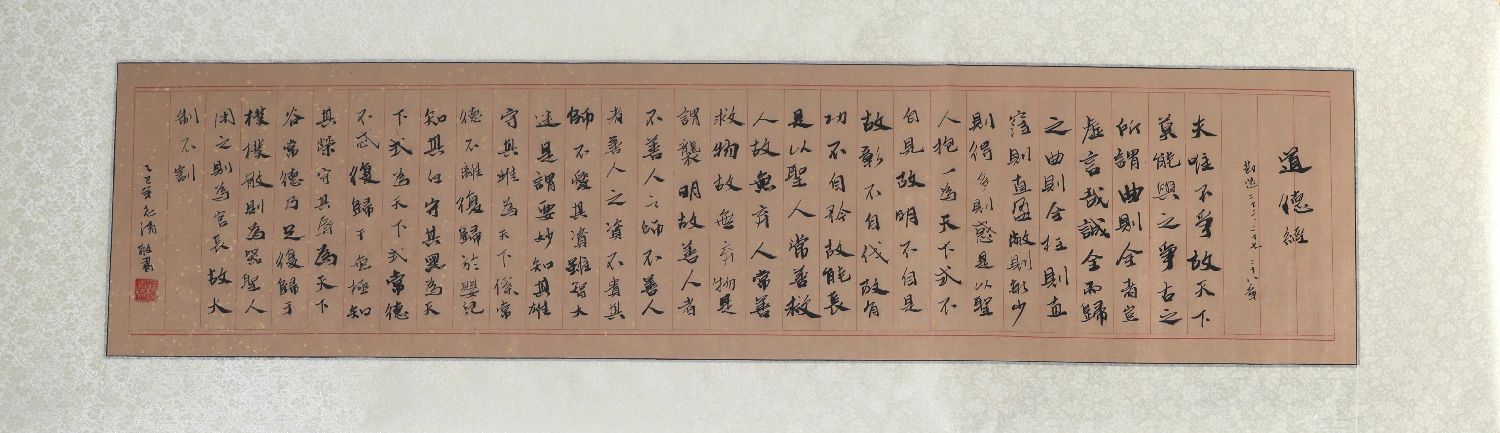 道德經
截選二十二、二十七、二十八章
夫唯不爭故天下
莫能與之爭古之
所謂曲則全者豈
虛言哉誠全而歸
之曲則全枉則直
窪則直盈敝則新少
則得多則惑是以聖
人抱一為天下式不
自見故明不自是
故彰不自伐故有
功不自矜故能長
是以聖人常善救
人故無弃人常善
救物故無弃物是
謂襲明故善人者
不善人之師不善人
者善人之資不貴其
師不愛其資雖智大
迷是謂要妙知其雄
守其雌為天下係常
德不離復歸於嬰兒
知其白守其黑為天
下式為天下式常德
不忒復歸于無極知
其榮守其辱為天下
谷常德乃足復歸于
樸樸散則為器聖人
用之則為官長故大
制不割
乙巳年志清敬書